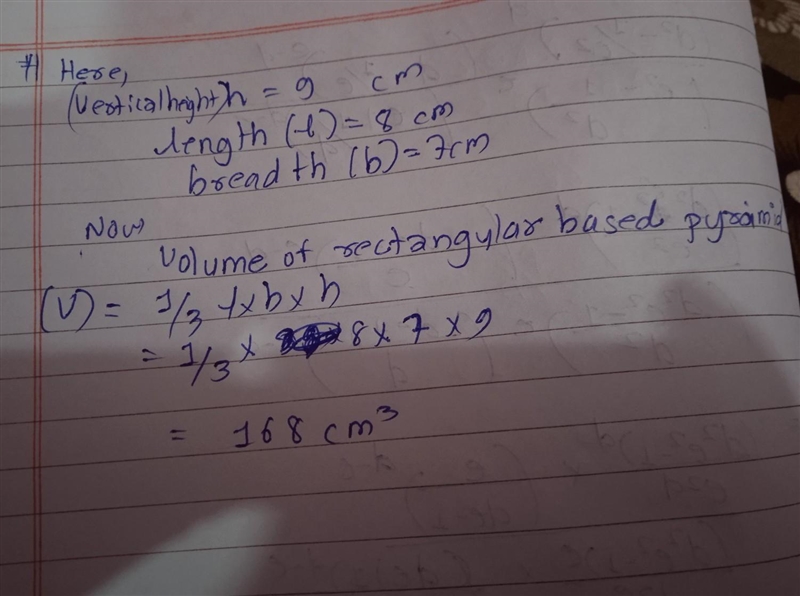 # Here,
(Verticalheght)h = 9 cm
length (l) = 8 cm
breadth (b) = 7cm
Now
Volume of rectangular based pyramid
(V) = 1/3 l x b x h
= 1/3 x 8 x 7 x 9
= 168 cm³